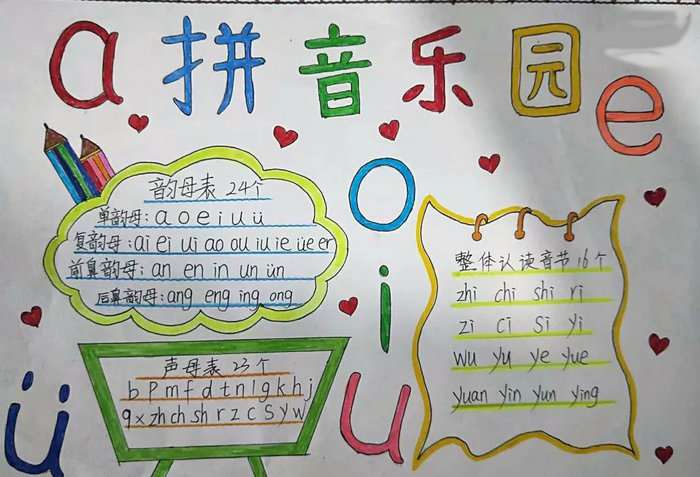 a 拼音乐园 e
音韵母表 24个
单韵母: a o e i u ü
复韵母: ai ei ui ao ou iu ie üe er
前鼻韵母: an en in un ün
后鼻韵母: ang eng ing ong
声母表 23个
b p m f d t n l g k h j
q x zh ch sh r z c s y w
o
i
ü
u
整体认读音节 16个
zhi chi shi ri
zi ci si yi
wu yu ye yue
yuan yin yun ying